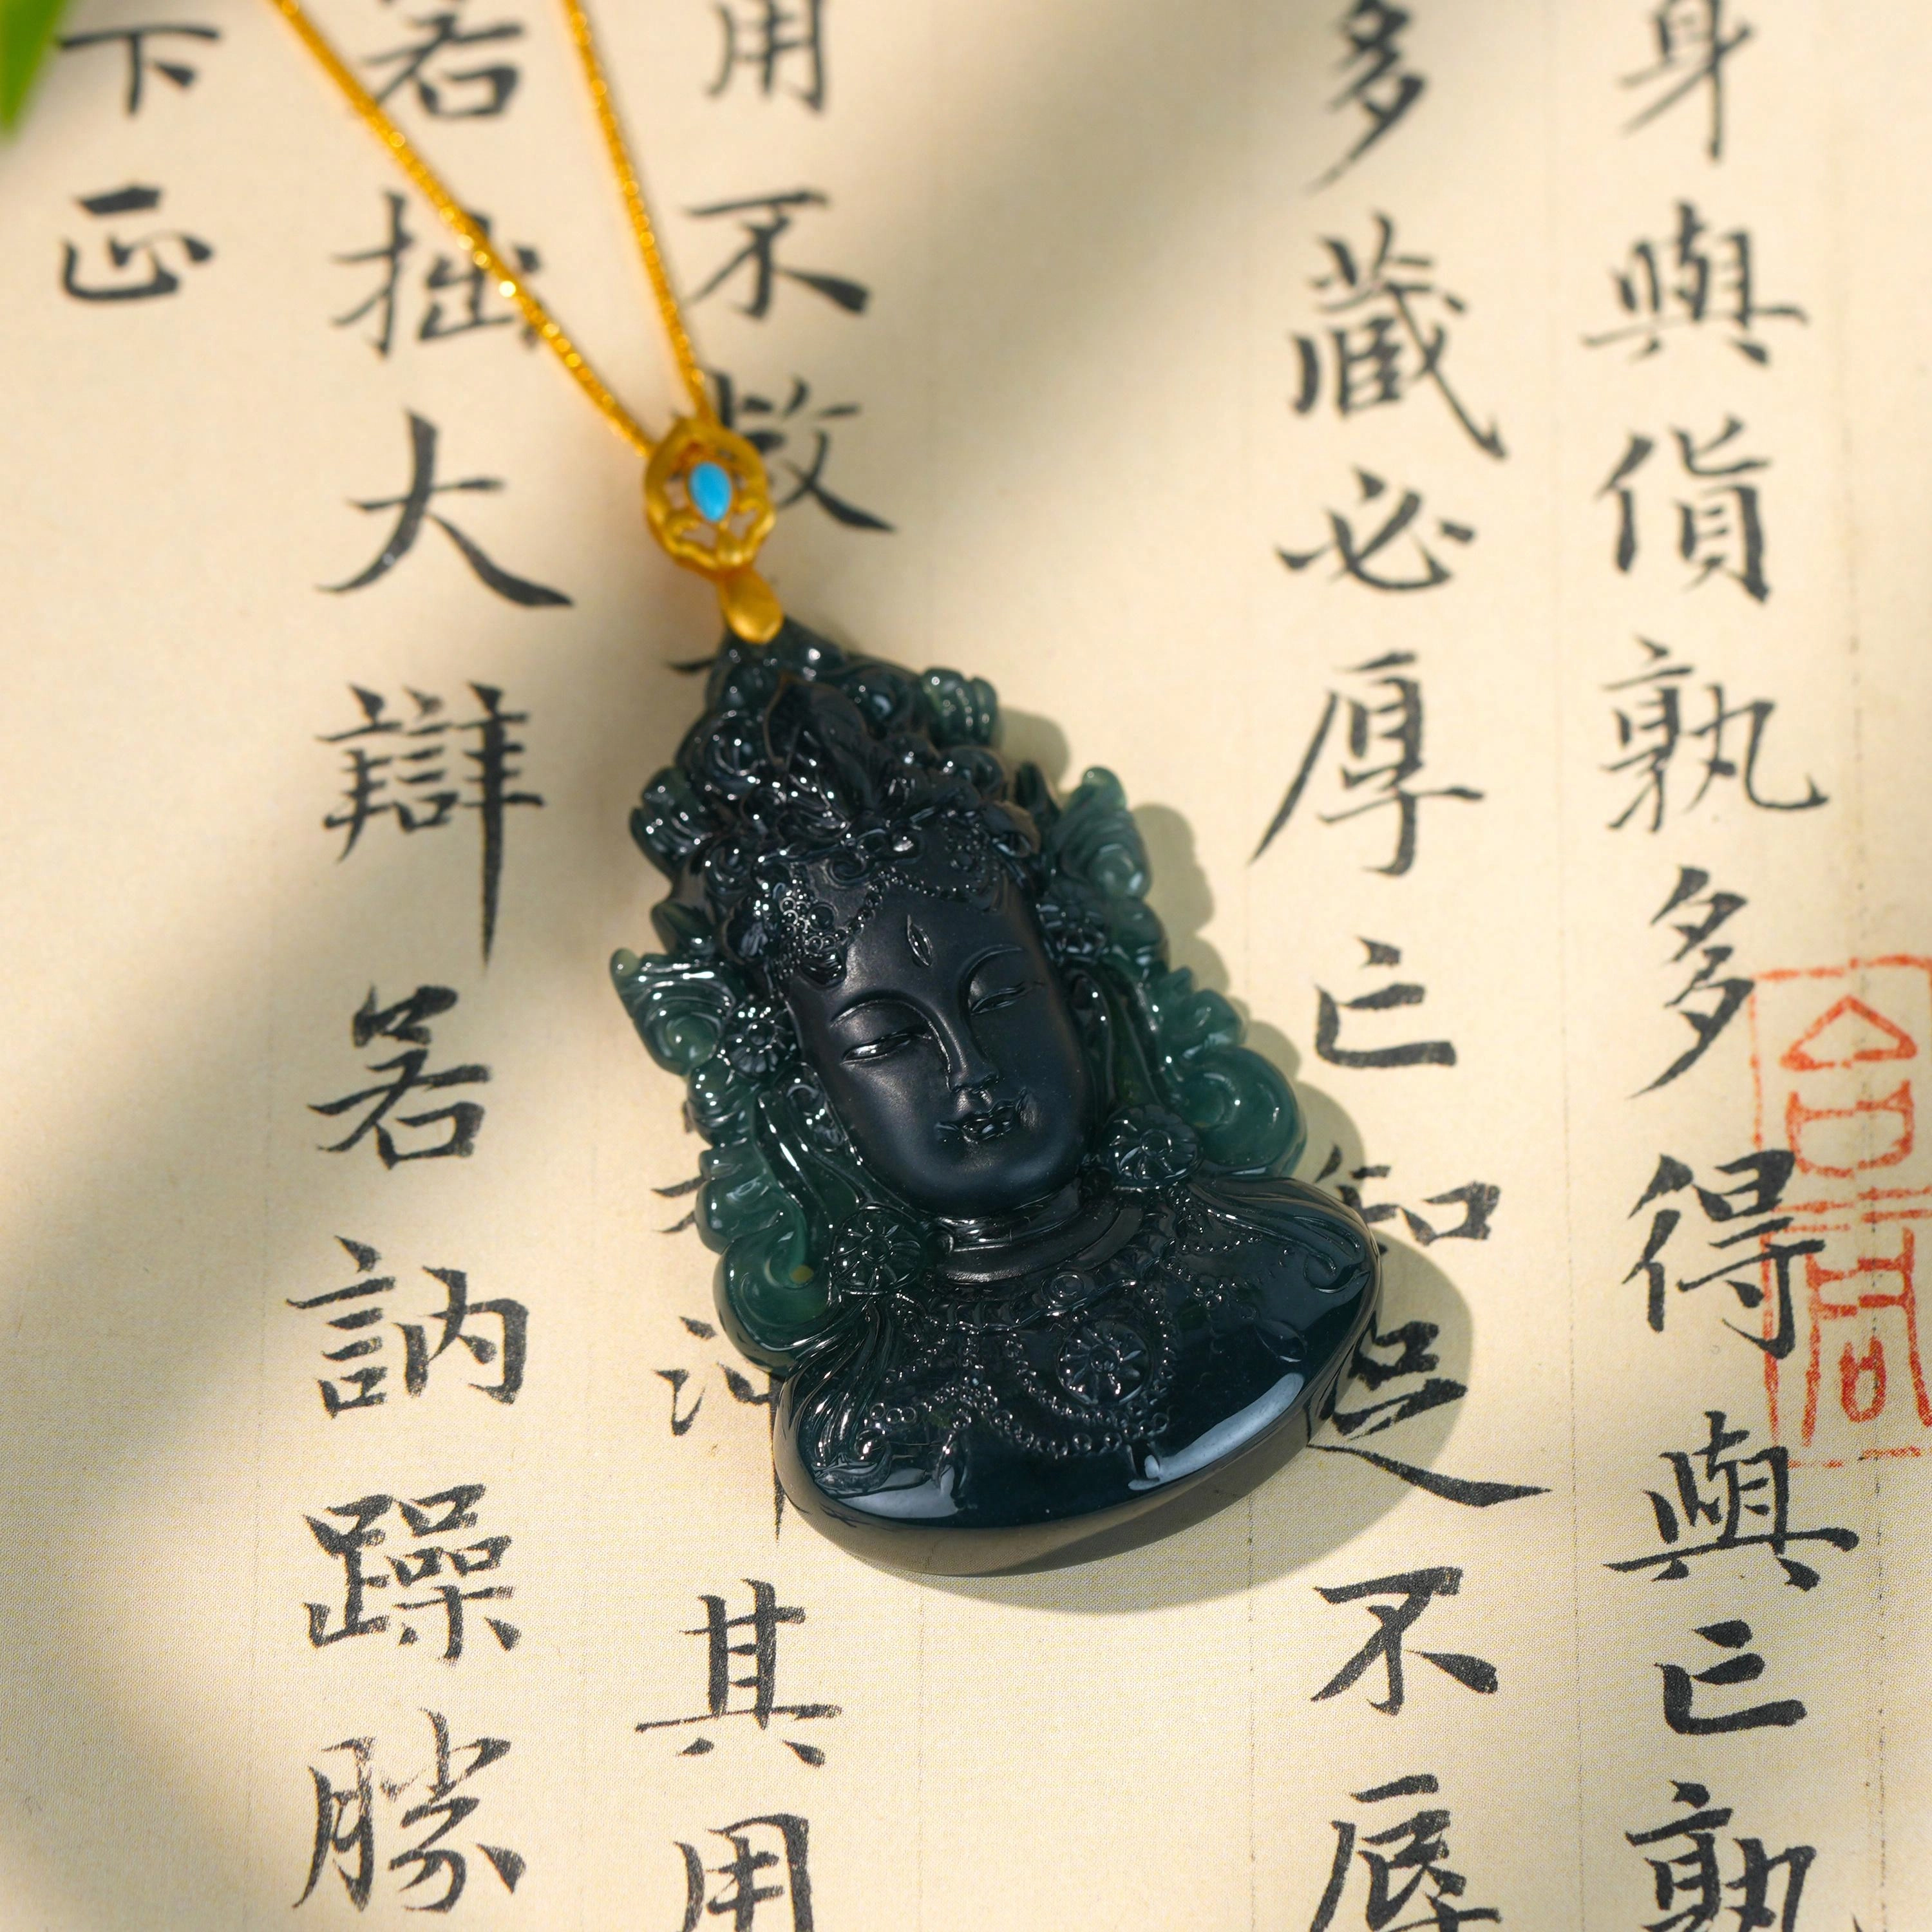 身與貨孰多得與亡孰
多藏必厚亡知足不辱
用不敝沖其用
若拙大辯若訥躁勝
下正